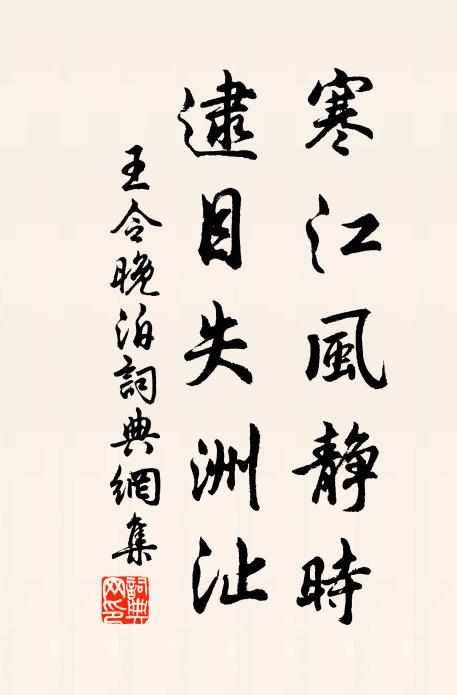 寒江風静時
逮目失洲沚
王令晚泊詞典網集
詞典网印